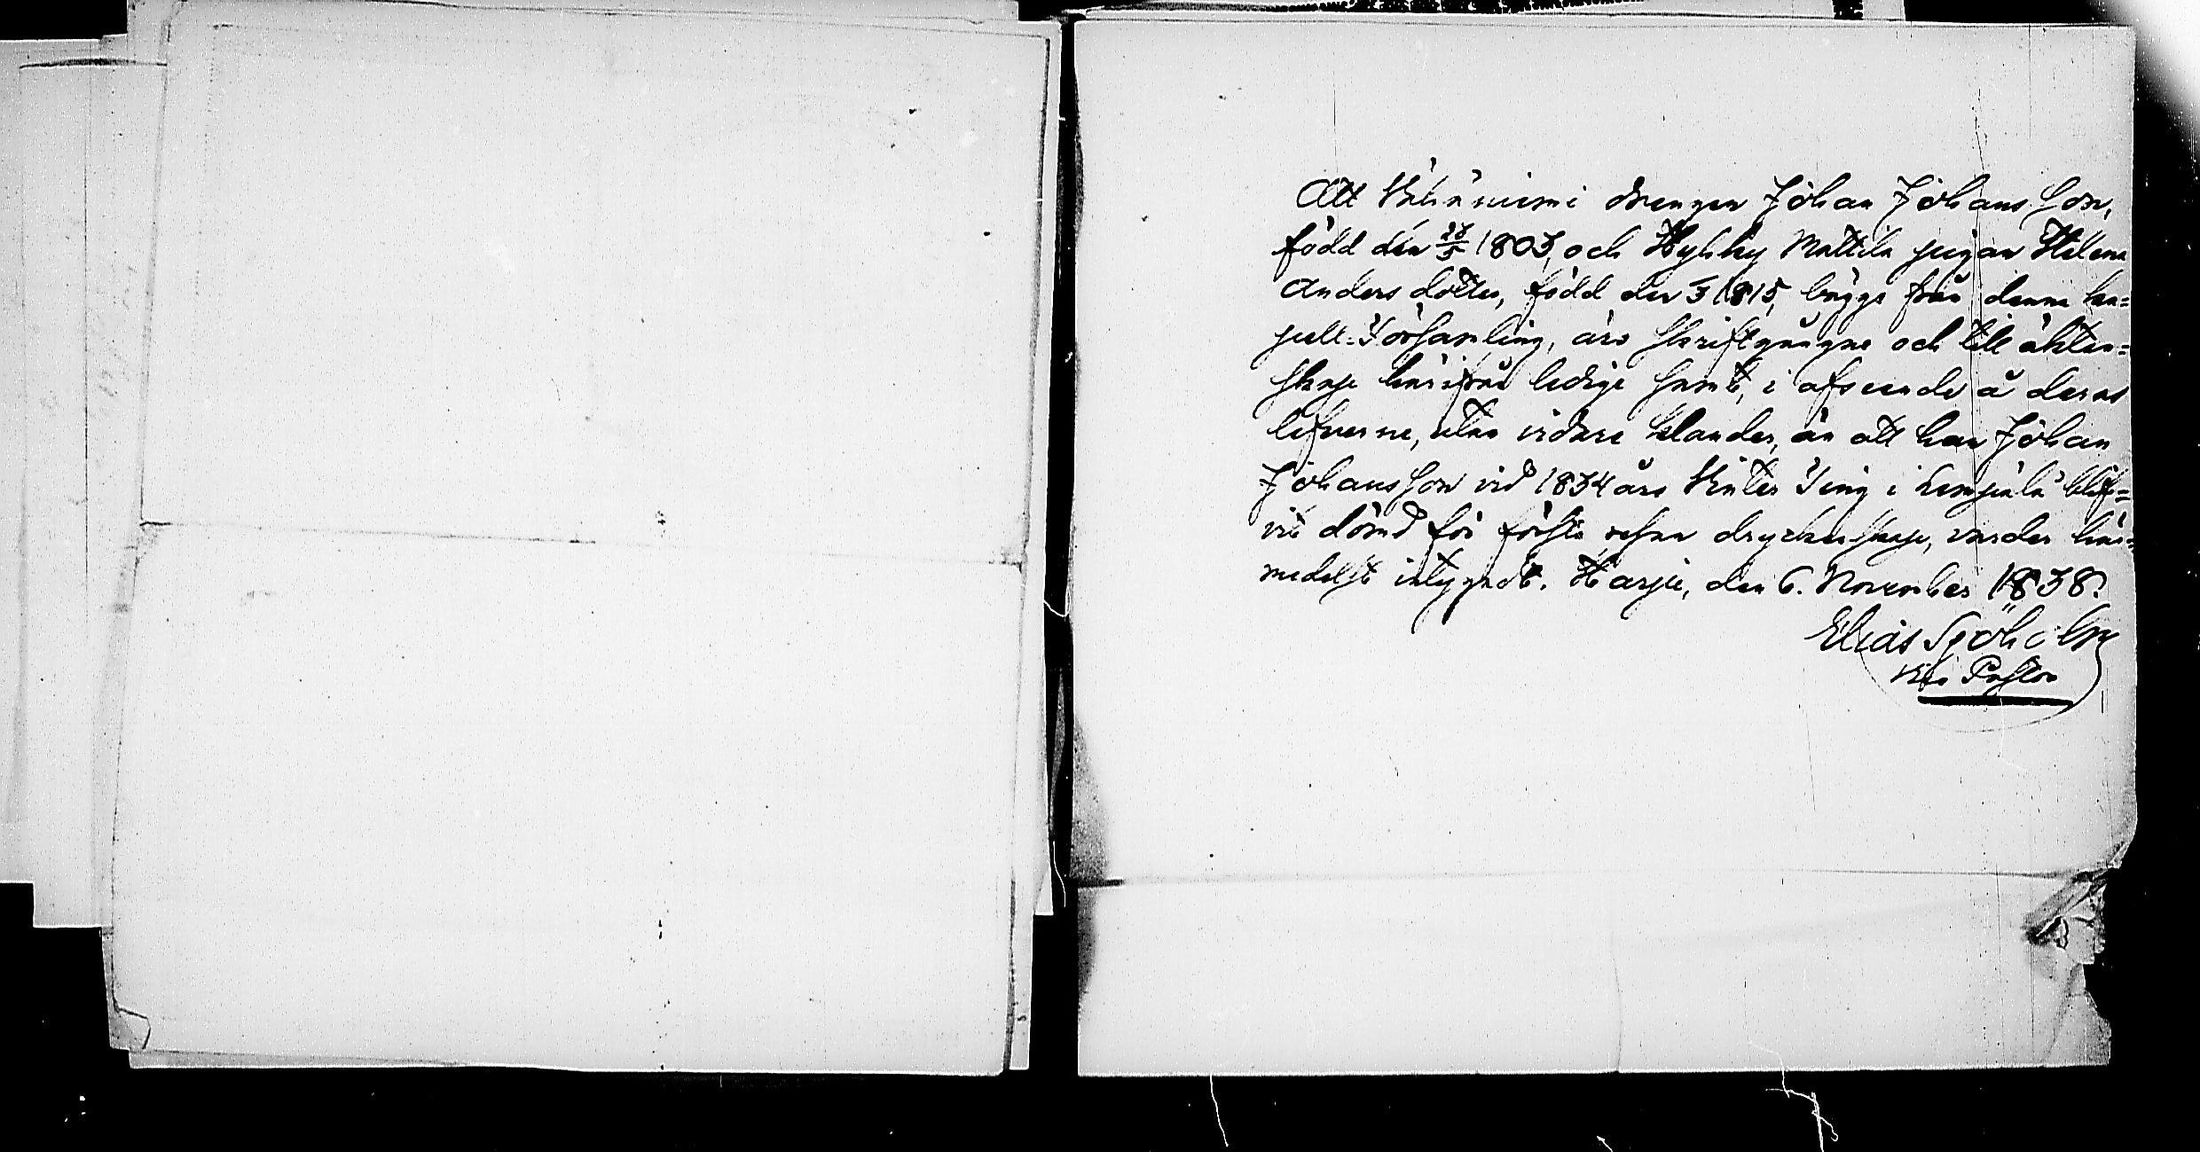 Att Vähäniemi drengen Johan Johansson,
född den 23/5 1803, och Hyhky Mattila pigan Helena
Anders dotter, född den 3 1815, bägge från denne ka=
pell-Församling, äro skriftgångne och till äkten=
skap härifrån ledige samt, i afseende å deras
lefverne, utan vidare klander, än att han Johan
Johansson vid 1834 års Vinter Ting i Lempälä blif=
vit dömd för första resan dryckenskap, varder här=
medelst intygadt. Harju, den 6. November 1838.
Elias
Vice Pastor